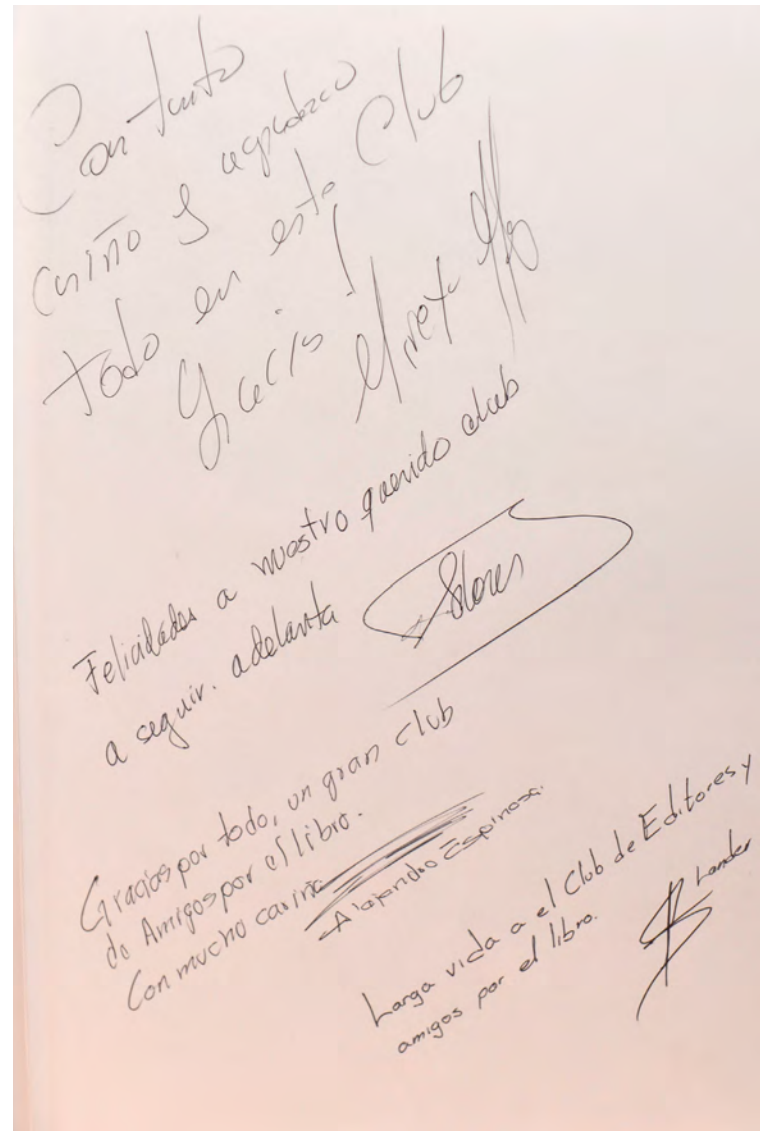 Con tanto
cariño y agradezco
todo en este Club
Gracias!
Felicidades a nuestro querido club
a seguir. adelante
Gracias por todo, un gran club
de Amigos por el libro.
Con mucho cariño
Alejandro Espinosa.
Larga vida a el Club de Editores y
amigos por el libro.
Lander